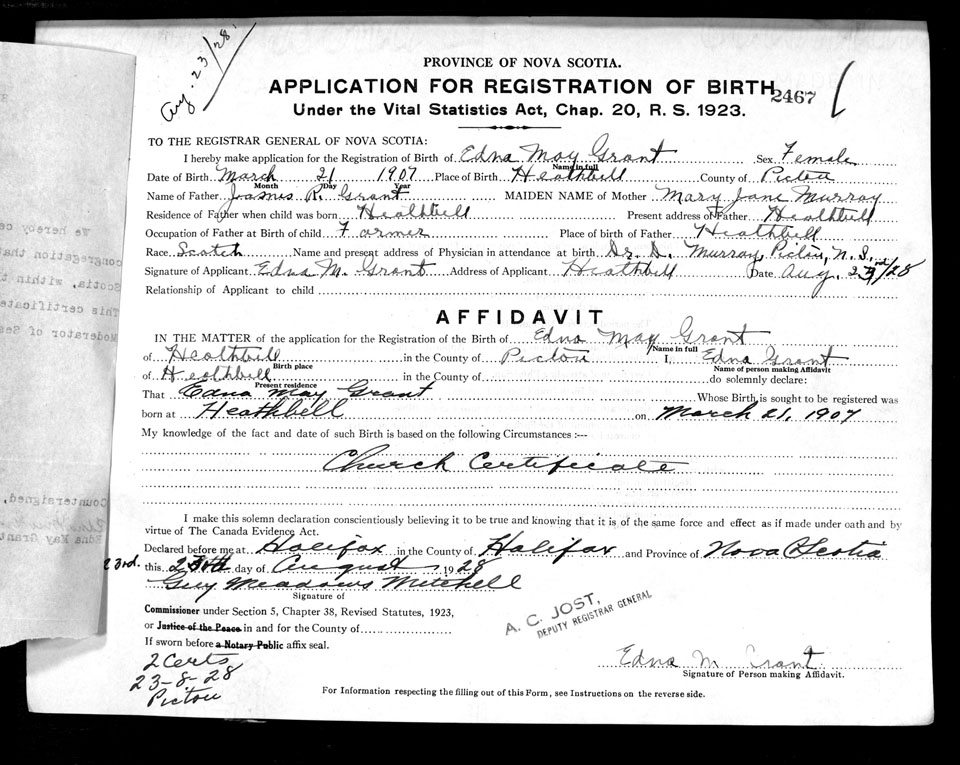 Aug. 23/28
PROVINCE OF NOVA SCOTIA.
APPLICATION FOR REGISTRATION OF BIRTH
2467
Under the Vital Statistics Act, Chap. 20, R. S. 1923.
TO THE REGISTRAR GENERAL OF NOVA SCOTIA:
I hereby make application for the Registration of Birth of Edna May Grant Sex Female
Name in full
Date of Birth March 21 1907 Place of Birth Heathbell County of Pictou
Month Day Year
Name of Father James R. Grant MAIDEN NAME of Mother Mary Jane Murray
Residence of Father when child was born Heathbell Present address of Father Heathbell
Occupation of Father at Birth of child Farmer Place of birth of Father Heathbell
Race Scotch Name and present address of Physician in attendance at birth Dr. D. Murray, Pictou, N. S.
Signature of Applicant Edna M. Grant Address of Applicant Heathbell Date Aug. 23/28
Relationship of Applicant to child
AFFIDAVIT
IN THE MATTER of the application for the Registration of the Birth of Edna May Grant
Name in full
of Heathbell in the County of Pictou I, Edna Grant
Birth place Name of person making Affidavit
of Heathbell in the County of do solemnly declare:
Present residence
That Edna May Grant Whose Birth is sought to be registered was
born at Heathbell on March 21, 1907
My knowledge of the fact and date of such Birth is based on the following Circumstances :--
Church Certificate
I make this solemn declaration conscientiously believing it to be true and knowing that it is of the same force and effect as if made under oath and by
virtue of The Canada Evidence Act.
Declared before me at Halifax in the County of Halifax and Province of Nova Scotia
23rd.
this day of August 1928
Guy Meadows Mitchell
Signature of
Commissioner under Section 5, Chapter 38, Revised Statutes, 1923,
or Justice of the Peace in and for the County of
If sworn before a Notary Public affix seal.
A. C. JOST,
DEPUTY REGISTRAR GENERAL
2 Certs
23-8-28
Pictou
Edna M Grant
Signature of Person making Affidavit.
For Information respecting the filling out of this Form, see Instructions on the reverse side.
We hereby ce
congregation that
Scotia, within t
This certificate
Moderator of Se
Countersigned,
Edna May Grant